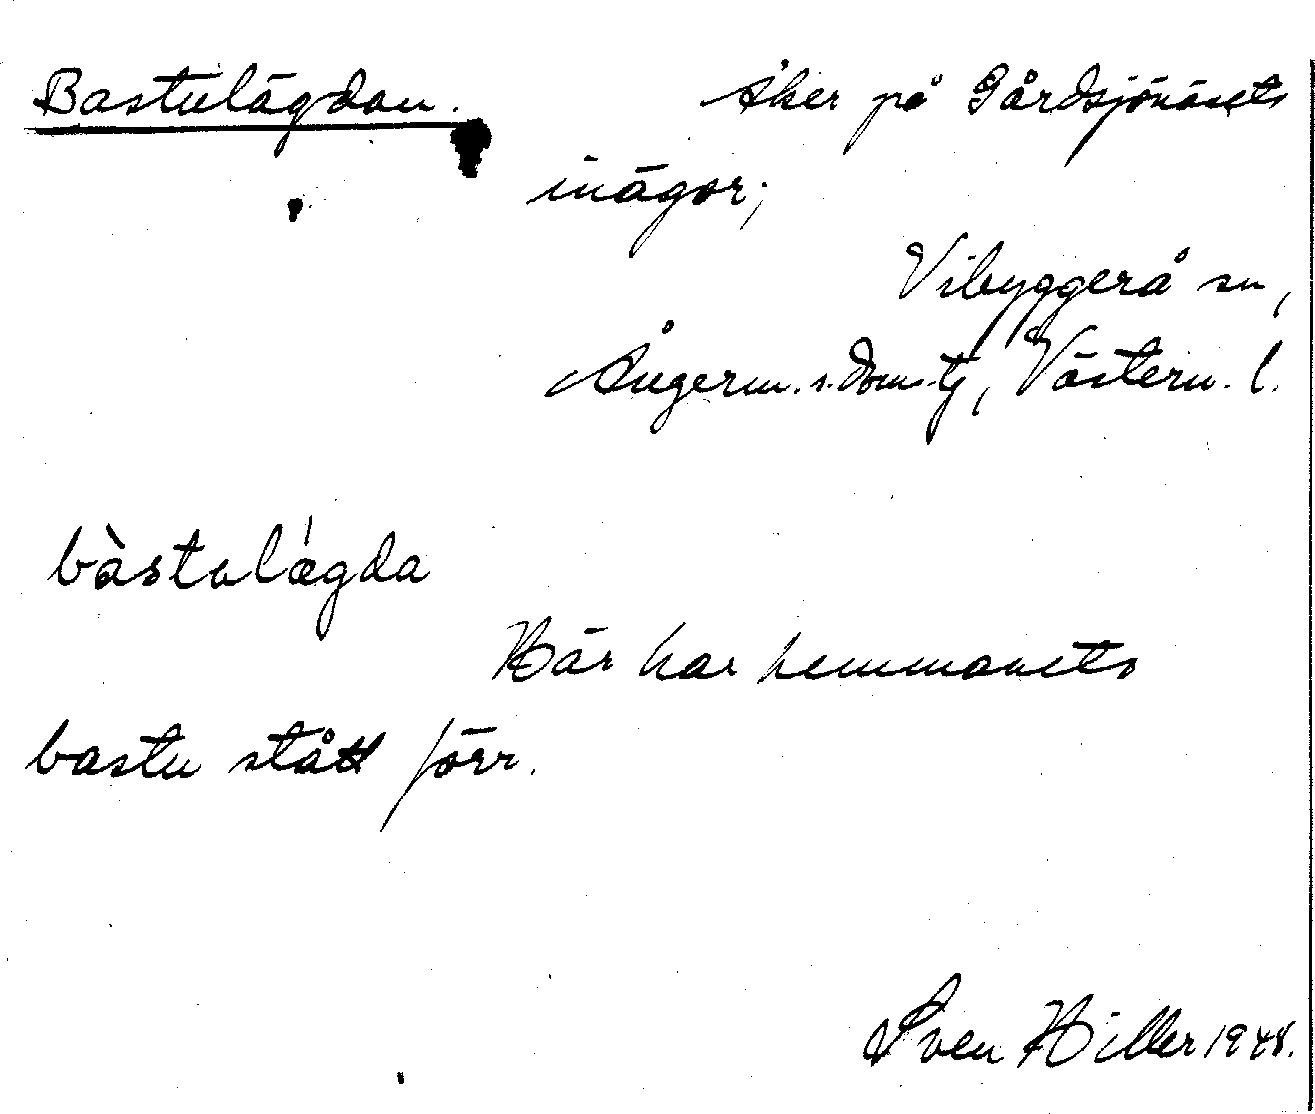 Bastulägdan. Åker på Gårdsjönäsets
inägor;
Vibyggerå sn,
Ångerm. s. doms-tj, Västern. l.
bàstulǽgda
Här har hemmanets
bastu stått förr.
Sven Hiller 1948.